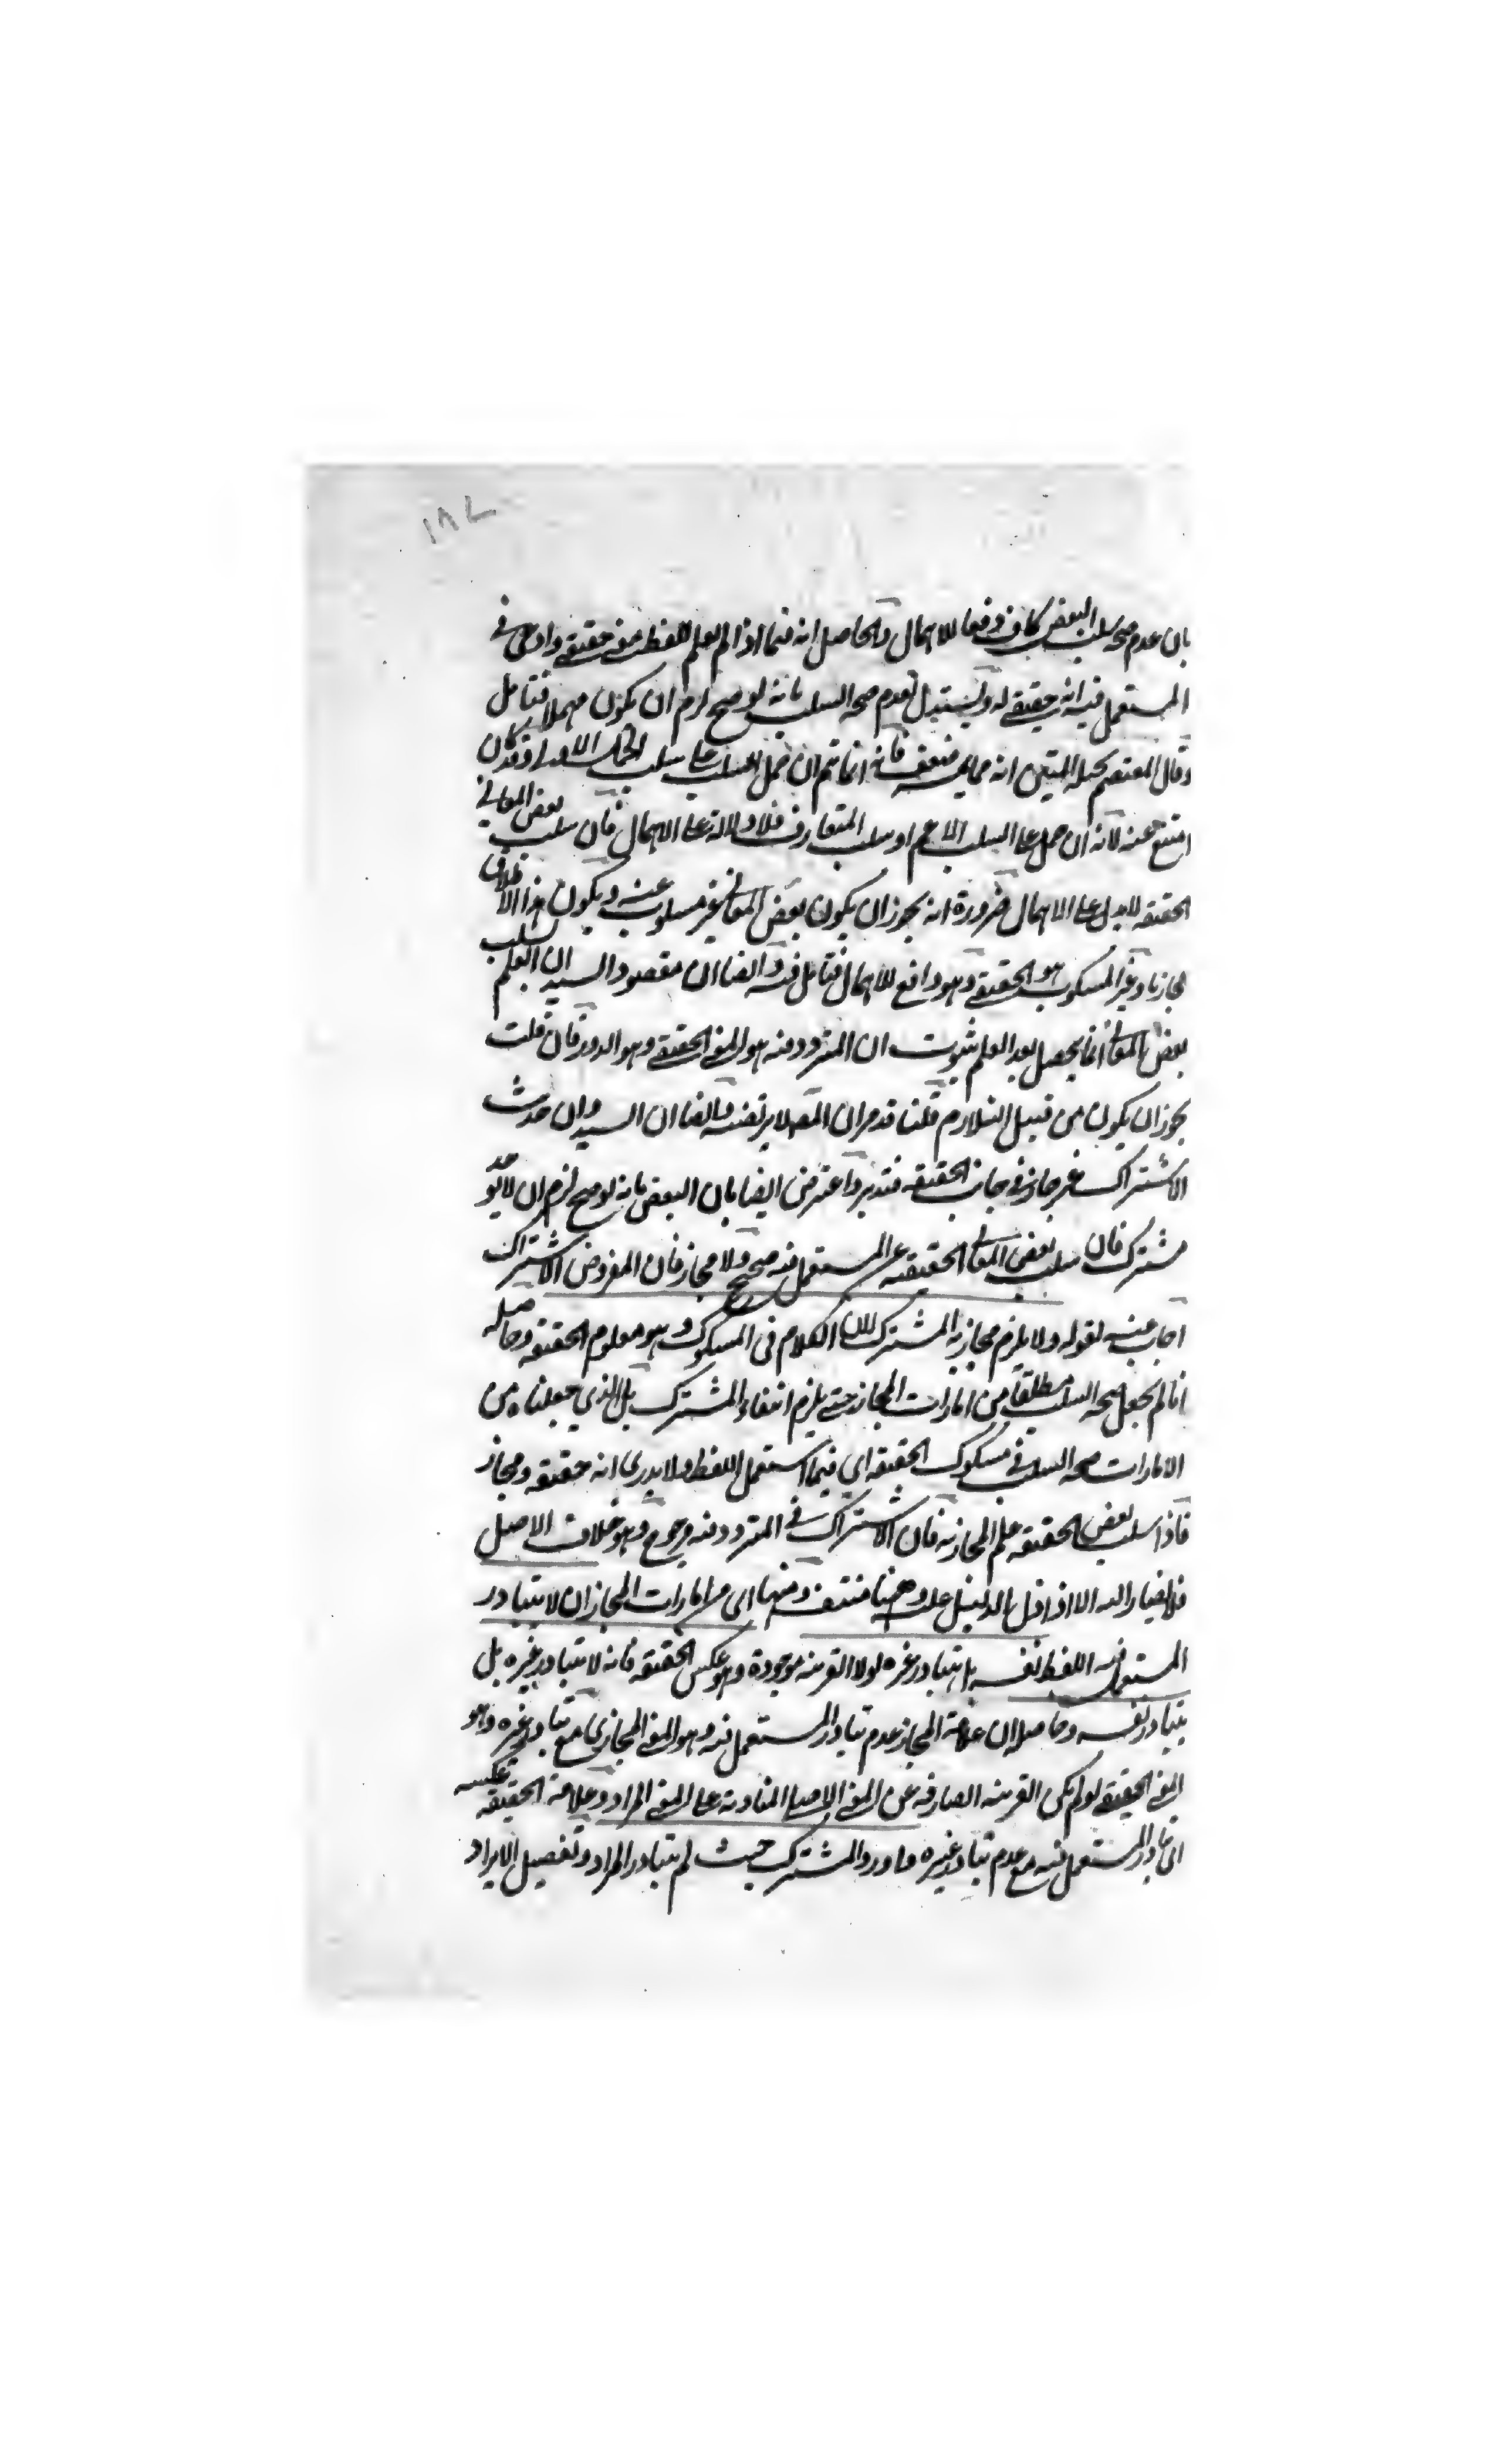 ١٨٧
بان عدم صحة سلب البعض كاف دفعا للاهمال والحاصل انه فيما اذا لم يعلم للفظ معنى حقيقي وادعى في
المستعمل فيه انه حقيقي له ويستدل بعدم صحة السلب بانه لو صح لزم ان يكون مهملا فتأمل
وقال المعتصم بحبل المتين انه ضعف فانه انما تم ان حمل السلب على سلب الحمل الاولى وقد كان
امتنع عنه لانه ان حمل على السلب الاعم او سلب المتعارف فلا دلالة على الاهمال فان سلب بعض المعاني
الحقيقه لا يدل على الاهمال ضرورة انه يجوز ان يكون بعض المعاني غير مسلوب عنه ويكون هذا الاطلاق
مجازيا وغير المسلوب هو الحقيقي وهو دافع للاهمال فتأمل فيه وايضا ان مقصود السيد ان العلم لسلب
بعض المعاني انما يحصل بعد العلم بثبوت ان المتردد فيه هو المعنى الحقيقي وهو الدور فان قلت
يجوز ان يكون من قبيل التلازم قلنا قد مر ان المص لا يرتضيه وايضا ان السيد وان حدث
الاشتراك غير جائز في جانب الحقيقه فتدبر واعترض ايضا بان البعض بانه لو صح لزم ان لا يوجد
مشترك فان سلب بعض المعاني الحقيقيه عن المستعمل فيه صحيح ولا مجاز فان المفروض الاشتراك
اجاب عنه بقوله ولا يلزم مجازية المشترك لان الكلام في المشكوك وهو معلوم الحقيقه وحاصله
انا لم نجعل صحة السلب مطلقا من امارات المجاز حتى يلزم انتفاء المشترك بل الذي جعلناه من
الامارات صحة السلب في مشكوك الحقيقه اي فيما استعمل اللفظ ولا يدرى انه حقيقه ومجاز
فاذا سلب بعض الحقيقه علم المجازيه فان الاشتراك في المتردد فيه مرجوح وهو خلاف الاصل
فلا يصار اليه الا اذا دل الدليل عليه وههنا منتف ومنها اى من امارات المجاز ان لا يتبادر
المستعمل فيه اللفظ نفسه بل يتبادر غيره لولا القرينه موجودة وهو عكس الحقيقه فانه لا يتبادر غيره بل
يتبادر نفسه وحاصله ان علامة المجاز عدم تبادر المستعمل فيه وهو المعنى المجازي مع تبادر غيره وهو
المعنى الحقيقي لو لم يكن القرينه الصارفه عن المعنى الاصلي على المعنى المراد وعلامة الحقيقه عكسه
اى تبادر المستعمل فيه مع عدم تبادر غيره واورد المشترك حيث لم يتبادر المراد وتفصيل الايراد